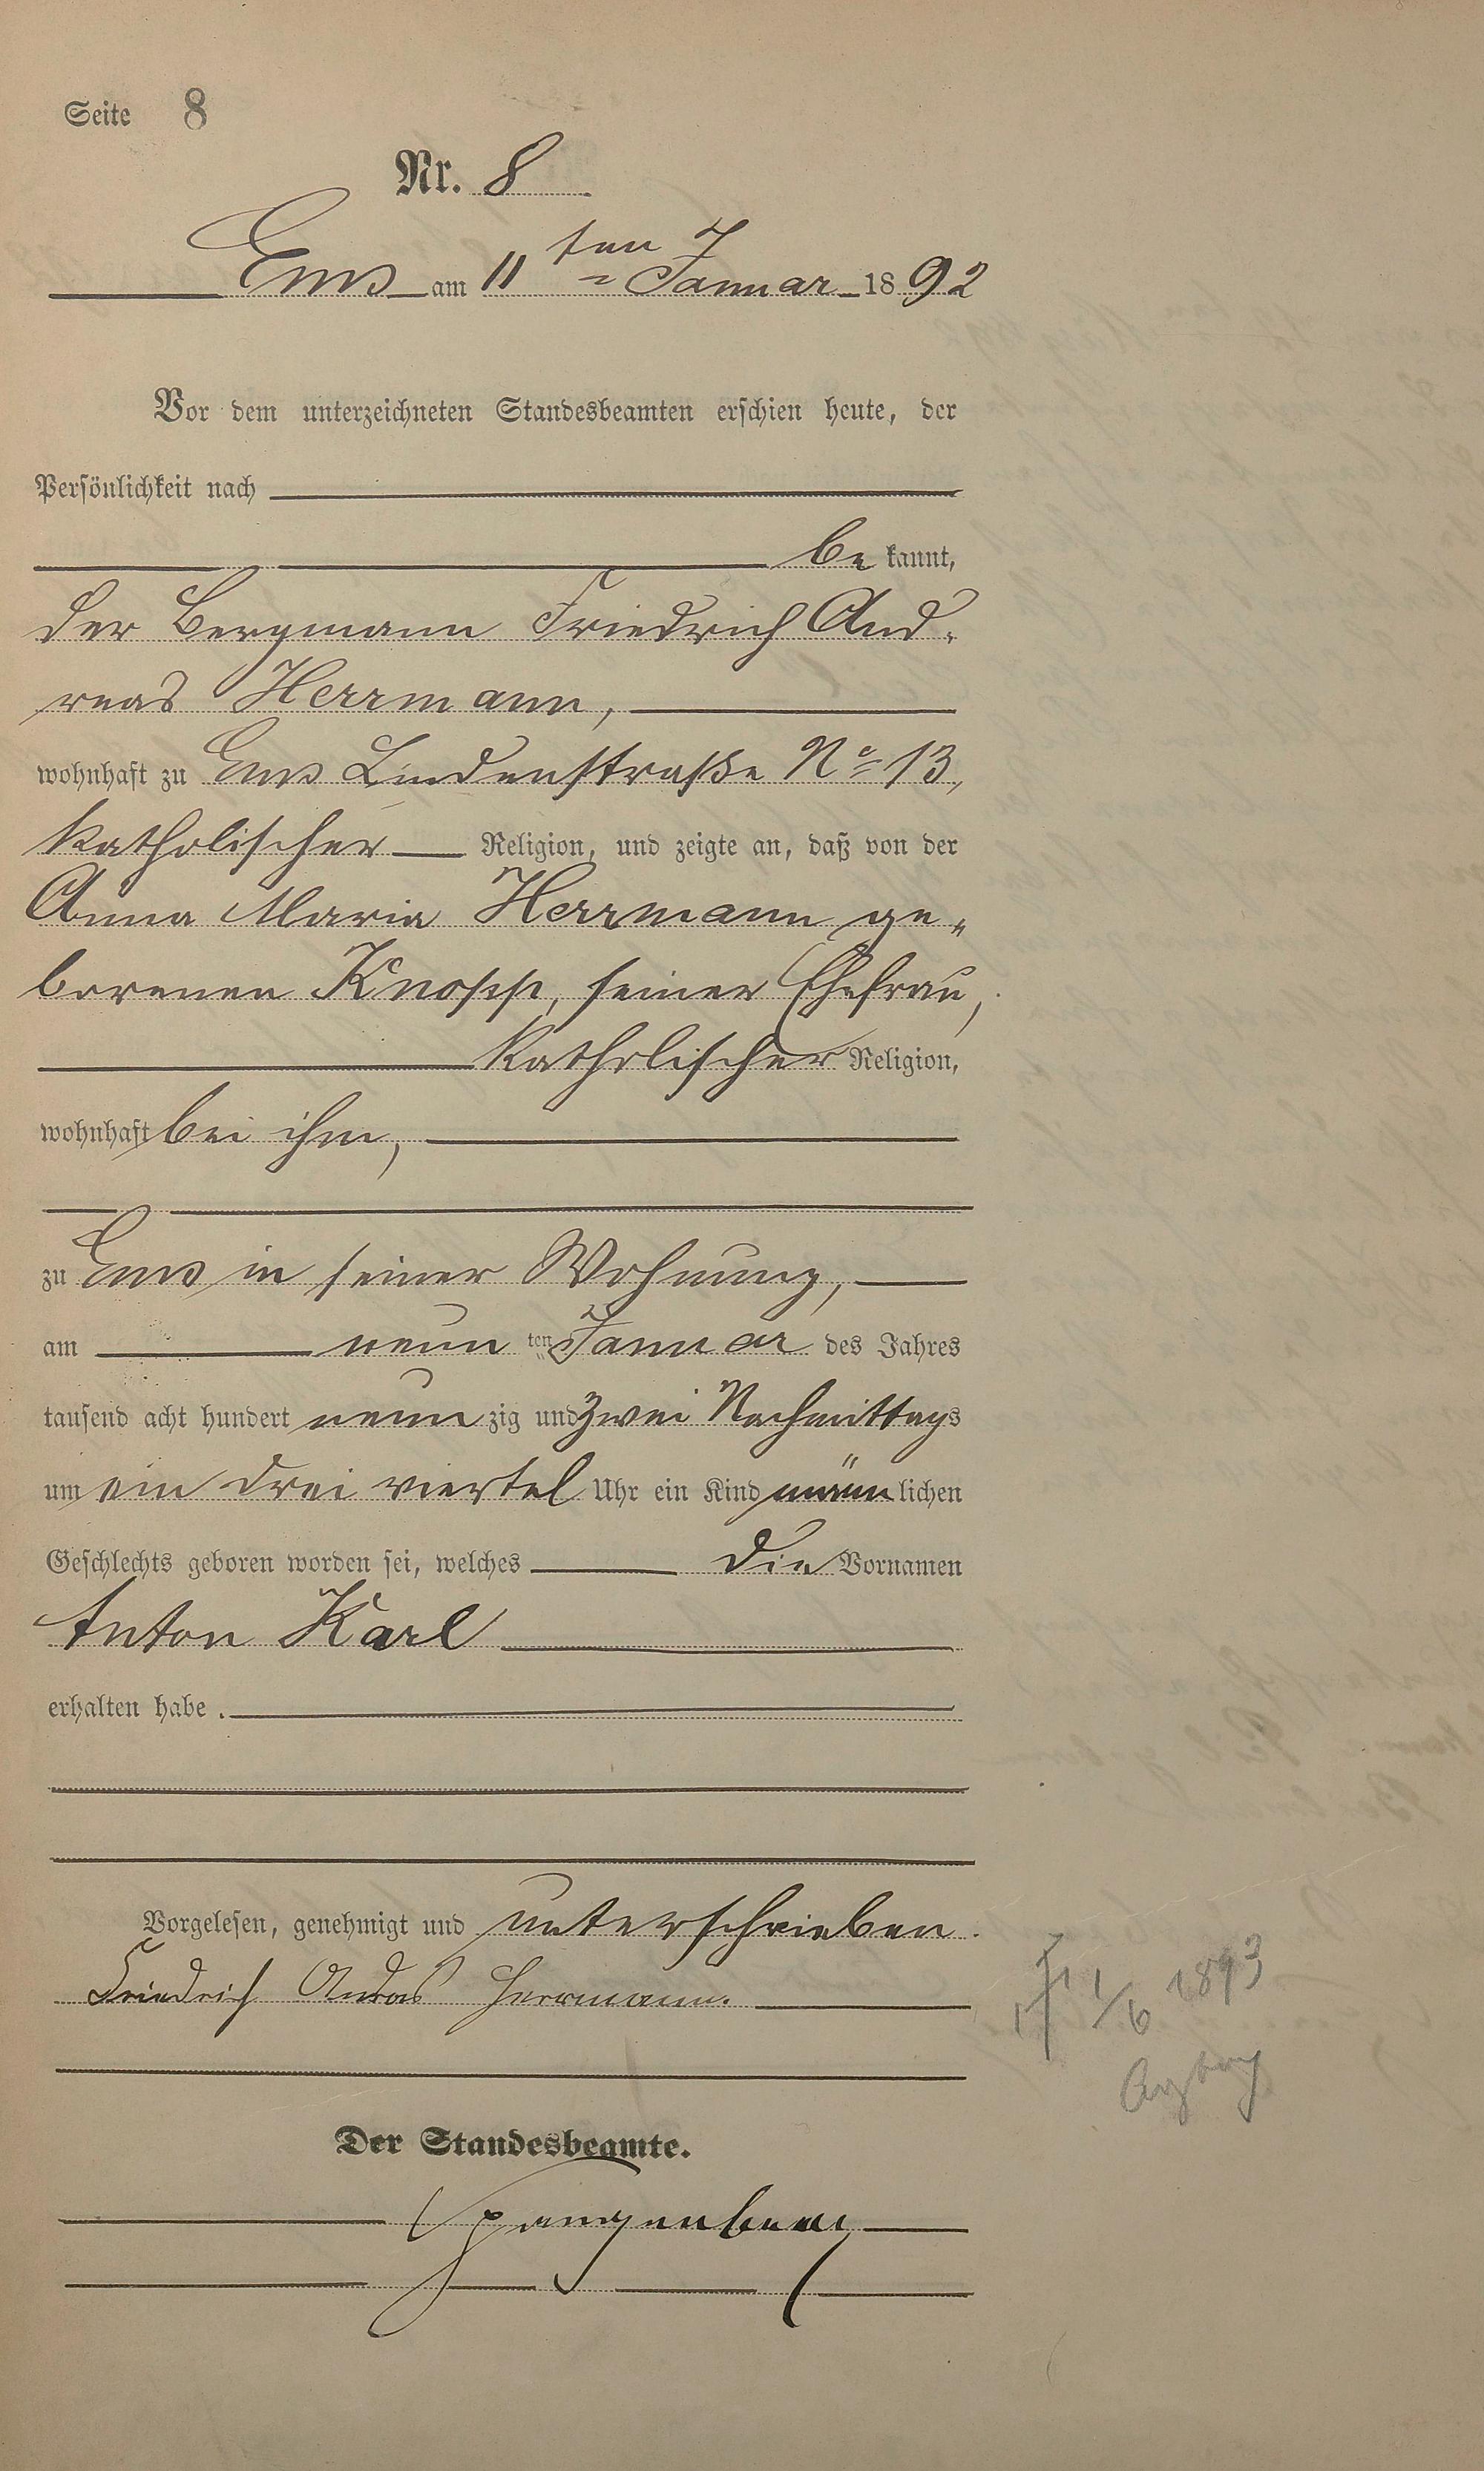 Seite 8
Nr. 8
Ems am 11ten Januar 1892
Vor dem unterzeichneten Standesbeamten erschien heute, der
Persönlichkeit nach
be kannt,
der Bergmann Friedrich And-
reas Herrmann,
wohnhaft zu Ems Lindenstraße No 13,
katholischer Religion, und zeigte an, daß von der
Anna Maria Herrmann ge-
borenen Knopp, seiner Ehefrau,
katholischer Religion,
wohnhaft bei ihm,
zu Ems in seiner Wohnung,
am neun ten Januar des Jahres
tausend acht hundert neun zig und zwei Nachmittags
um ein drei viertel Uhr ein Kind männ lichen
Geschlechts geboren worden sei, welches die Vornamen
Anton Karl
erhalten habe.
Vorgelesen, genehmigt und unterschrieben.
Friedrich Andras Herrmann.
1/6 1893
Der Standesbeamte.
Spangenberg